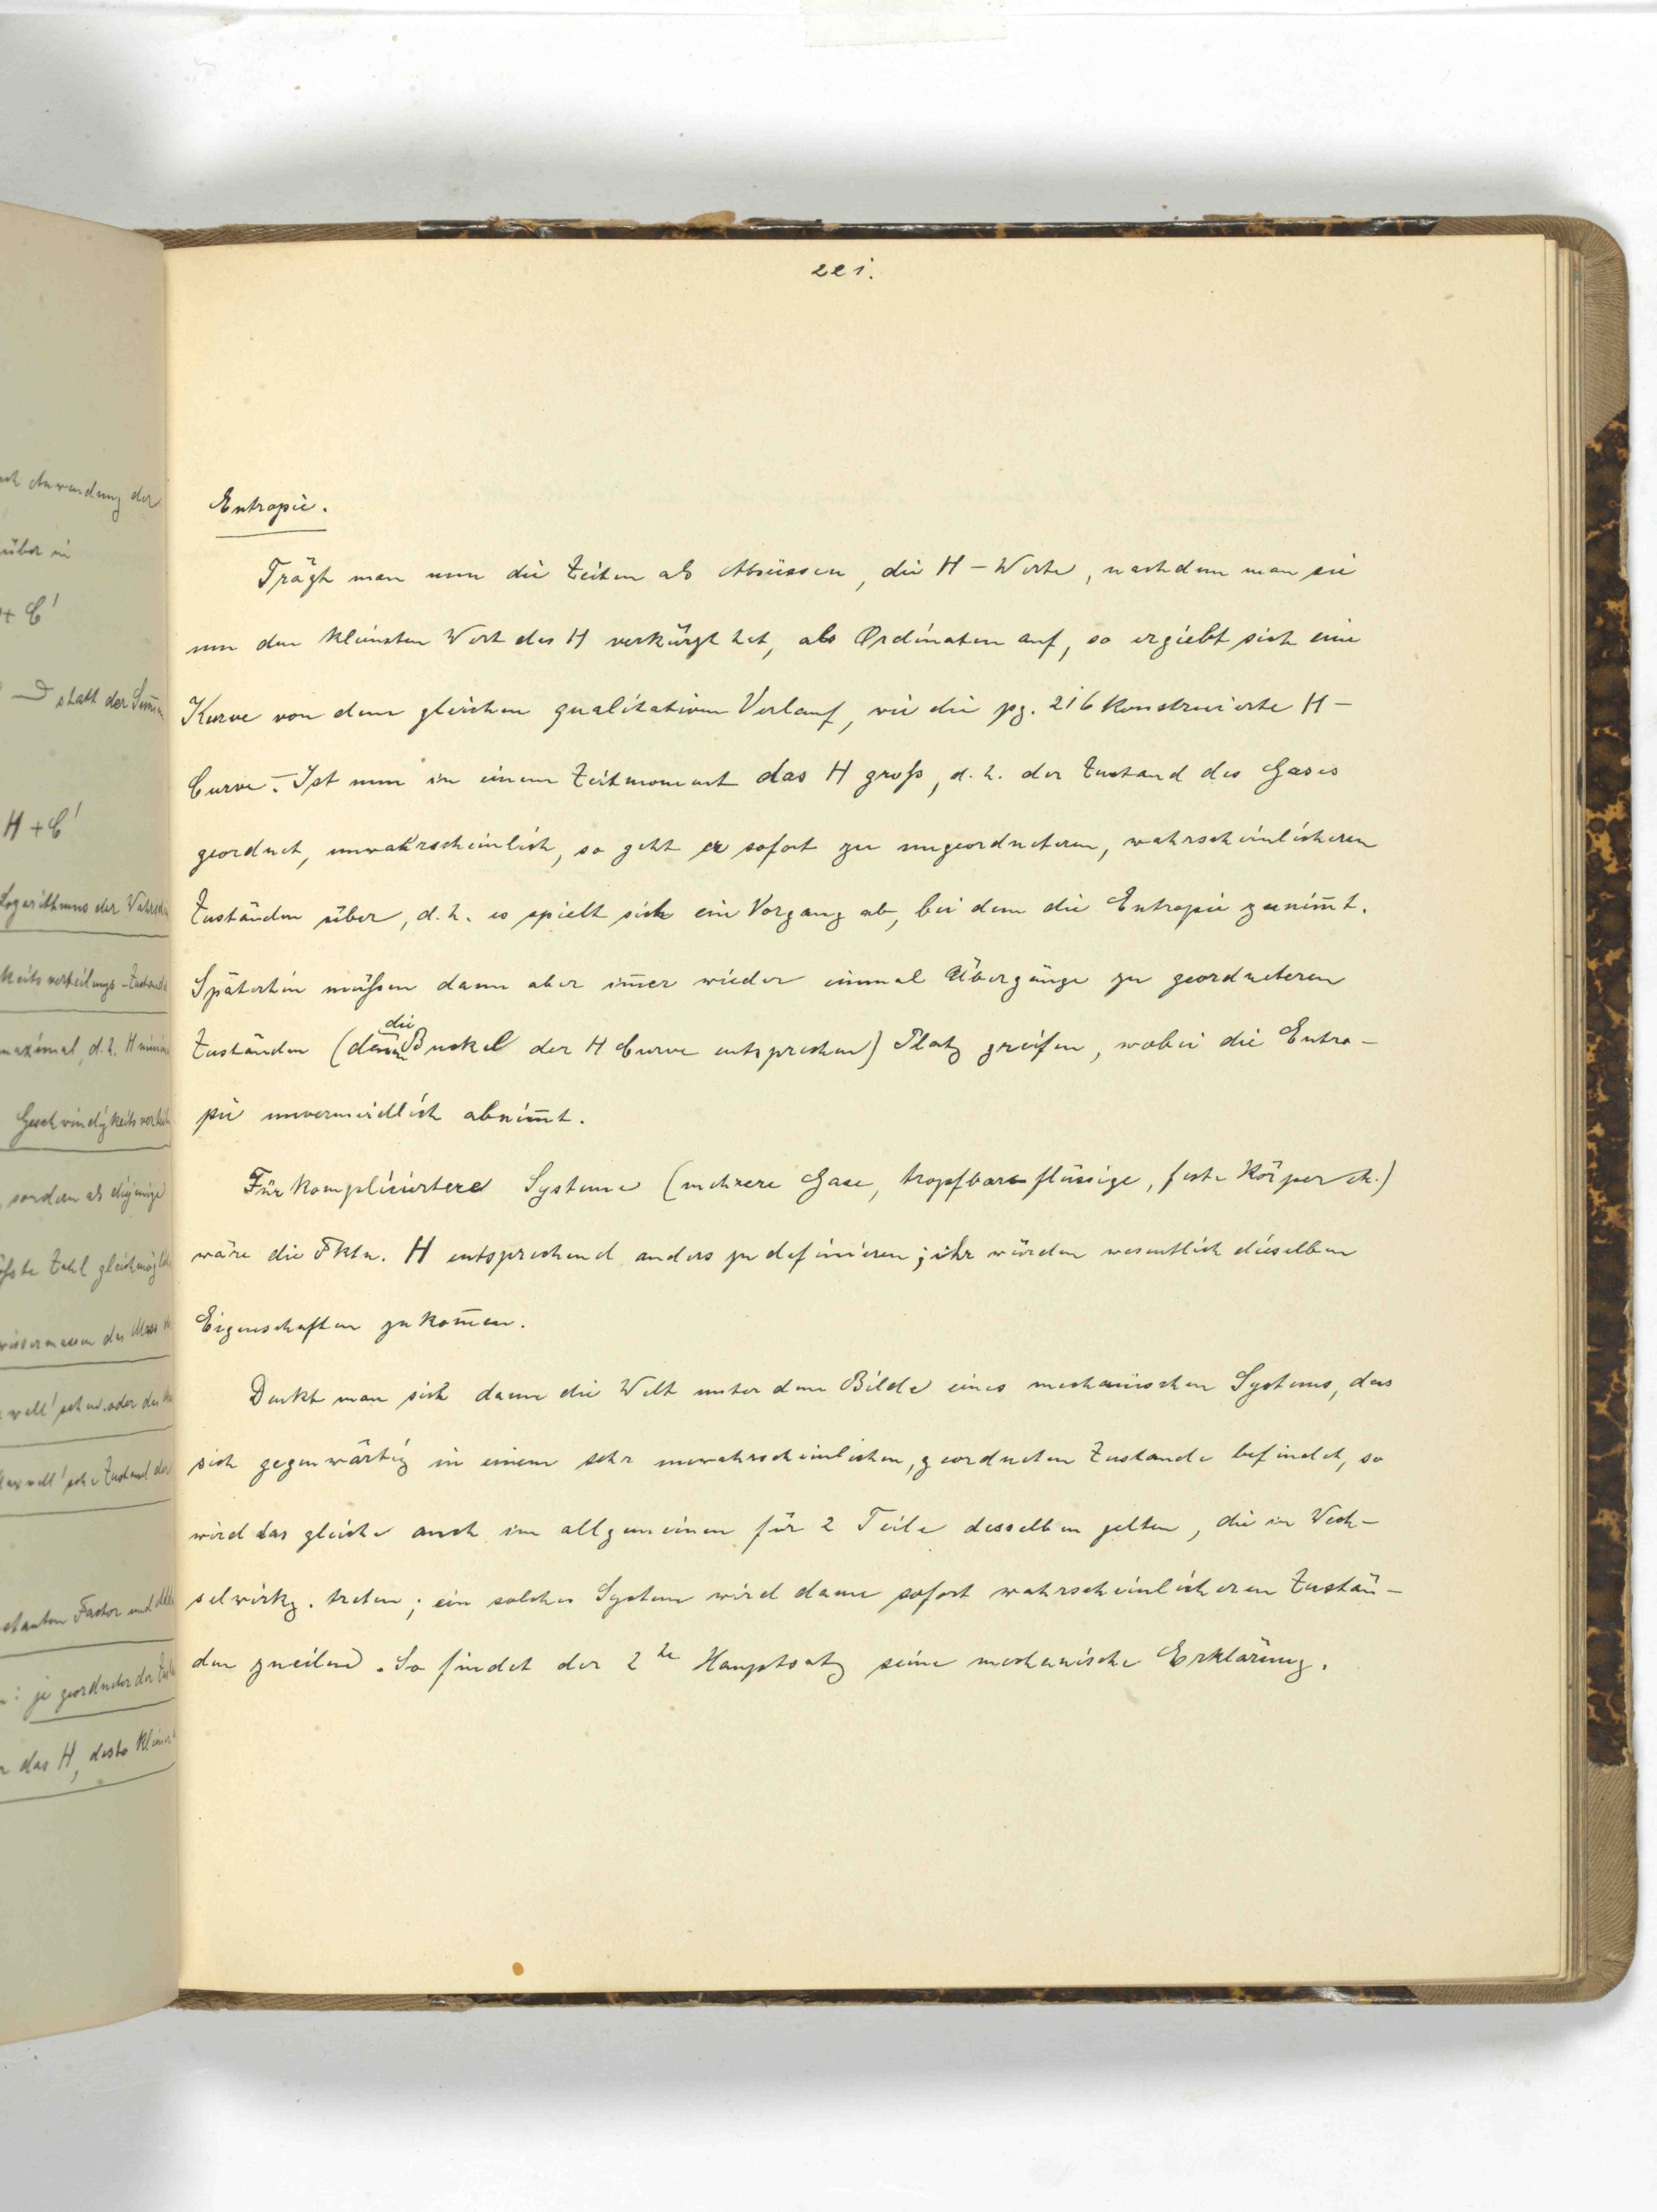 221.
Entropie.
Trägt man nun die Zeiten als Abscissen, die H-Werte, nachdem man sie
um den kleinsten Wert des H verkürzt hat, als Ordinaten auf, so ergiebt sich eine
Kurve von dem gleichen qualitativen Verlauf, wie die pg. 216 konstruierte H-
Curve. – Ist nun in einem Zeitmoment das H groß, d. h. der Zustand des Gases
geordnet, unwahrscheinlich, so geht er sofort zu ungeordneteren, wahrscheinlicheren
Zuständen über, d. h. es spielt sich ein Vorgang ab, bei dem die Entropie zunim̅t.
Späterhin müßen dann aber im̅er wieder einmal Übergänge zu geordneteren
die
Zuständen (denen Buckel der H Curve entsprechen) Platz greifen, wobei die Entro-
pie unvermeidlich abnim̅t.
Für kompliciertere Systeme (mehrere Gase, tropfbare flüssige, feste Körper etc.)
wäre die Fktn. H entsprechend anders zu definieren; ihr würden wesentlich dieselben
Eigenschaften zukom̅en.
Denkt man sich dann die Welt unter dem Bilde eines mechanischen Systems, das
sich gegenwärtig in einem sehr unwahrscheinlichen, geordneten Zustande befindet, so
wird das gleiche auch im allgemeinen für 2 Teile desselben gelten, die in Wech-
selwirkg. treten; ein solches System wird dann sofort wahrscheinlicheren Zustän-
den zueilen. So findet der 2te Hauptsatz seine mechanische Erklärung.
Anwendung der
über in
+ C'
statt der Sum̅en
H + C'
Logarithmus der
keitsverteilungs-Zustande
maximal, d. h. H
Geschwindigkeits
sondern als diejenige
Zahl
das Mass
oder das
Zustand der
Factor und
je geordneter der
das H, desto